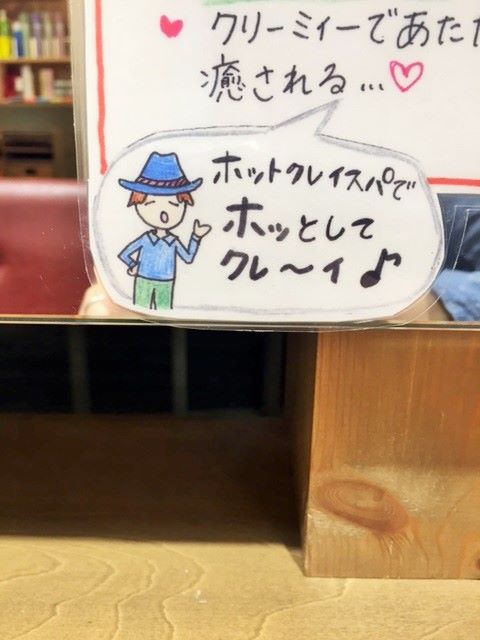 クリーミィーであたた
癒される…
ホットクレイスパで
ホッとして
クレ〜イ♪